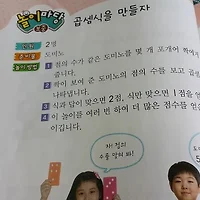 놀이마당
곱셈식을 만들자
인원 2명
준비물 도미노
놀이 방법 1 점의 수가 같은 도미노를 몇 개 모개어 짝에게
줍니다.
2 짝이 보여 준 도미노의 점의 수를 보고 곱셈
나타냅니다.
3 식과 답이 맞으면 2점, 식만 맞으면 1점을 얻
4 이 놀이를 여러 번 하여 더 많은 점수를 얻
이깁니다.
자! 점의
수를 맞혀 봐!